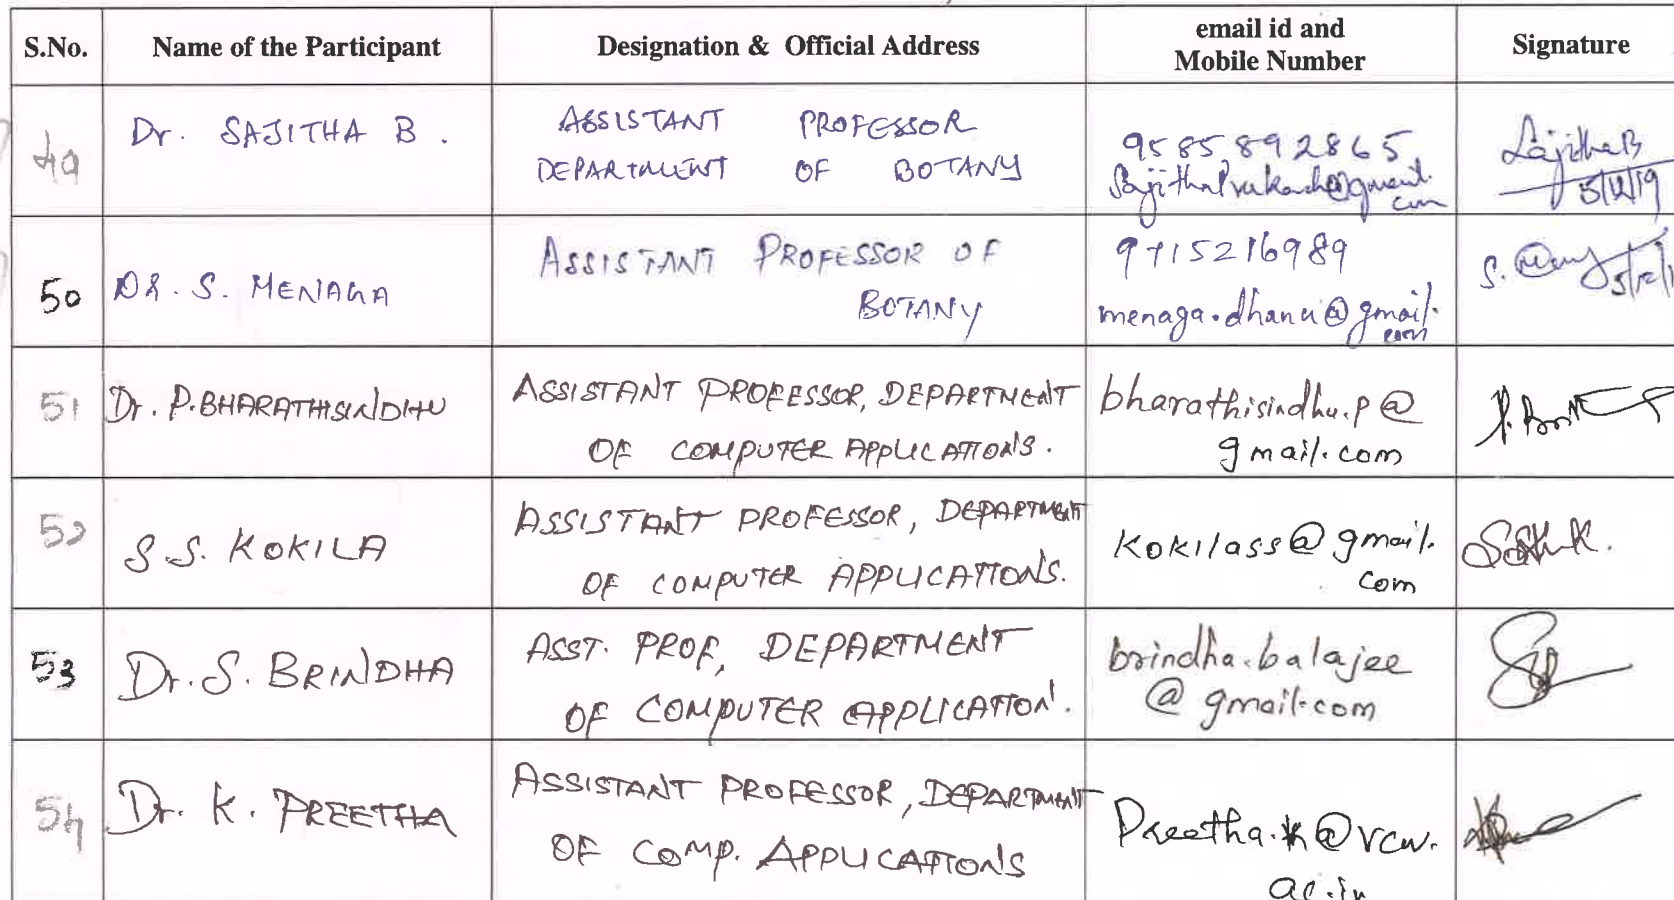 S.No. Name of the Participant Designation & Official Address email id and Mobile Number Signature
49 Dr. SAJITHA B. ASSISTANT PROFESSOR
DEPARTMENT OF BOTANY
9585892865
SajithaB
5/12/19
50 DR. S. MENAGA ASSISTANT PROFESSOR OF
BOTANY
9715216989
menaga.dhanu@gmail.
com
S.
51 Dr. P. BHARATHISINDHU ASSISTANT PROFESSOR, DEPARTMENT
OF COMPUTER APPLICATIONS.
bharathisindhu.p@
gmail.com
52 S.S. KOKILA ASSISTANT PROFESSOR, DEPARTMENT
OF COMPUTER APPLICATIONS.
kokilass@gmail.
com
53 Dr. S. BRINDHA ASST. PROF, DEPARTMENT
OF COMPUTER APPLICATION.
brindha.balajee
@gmail.com
54 Dr. K. PREETHA ASSISTANT PROFESSOR, DEPARTMENT
OF COMP. APPLICATIONS
Preetha.k@vcw.
ac.in